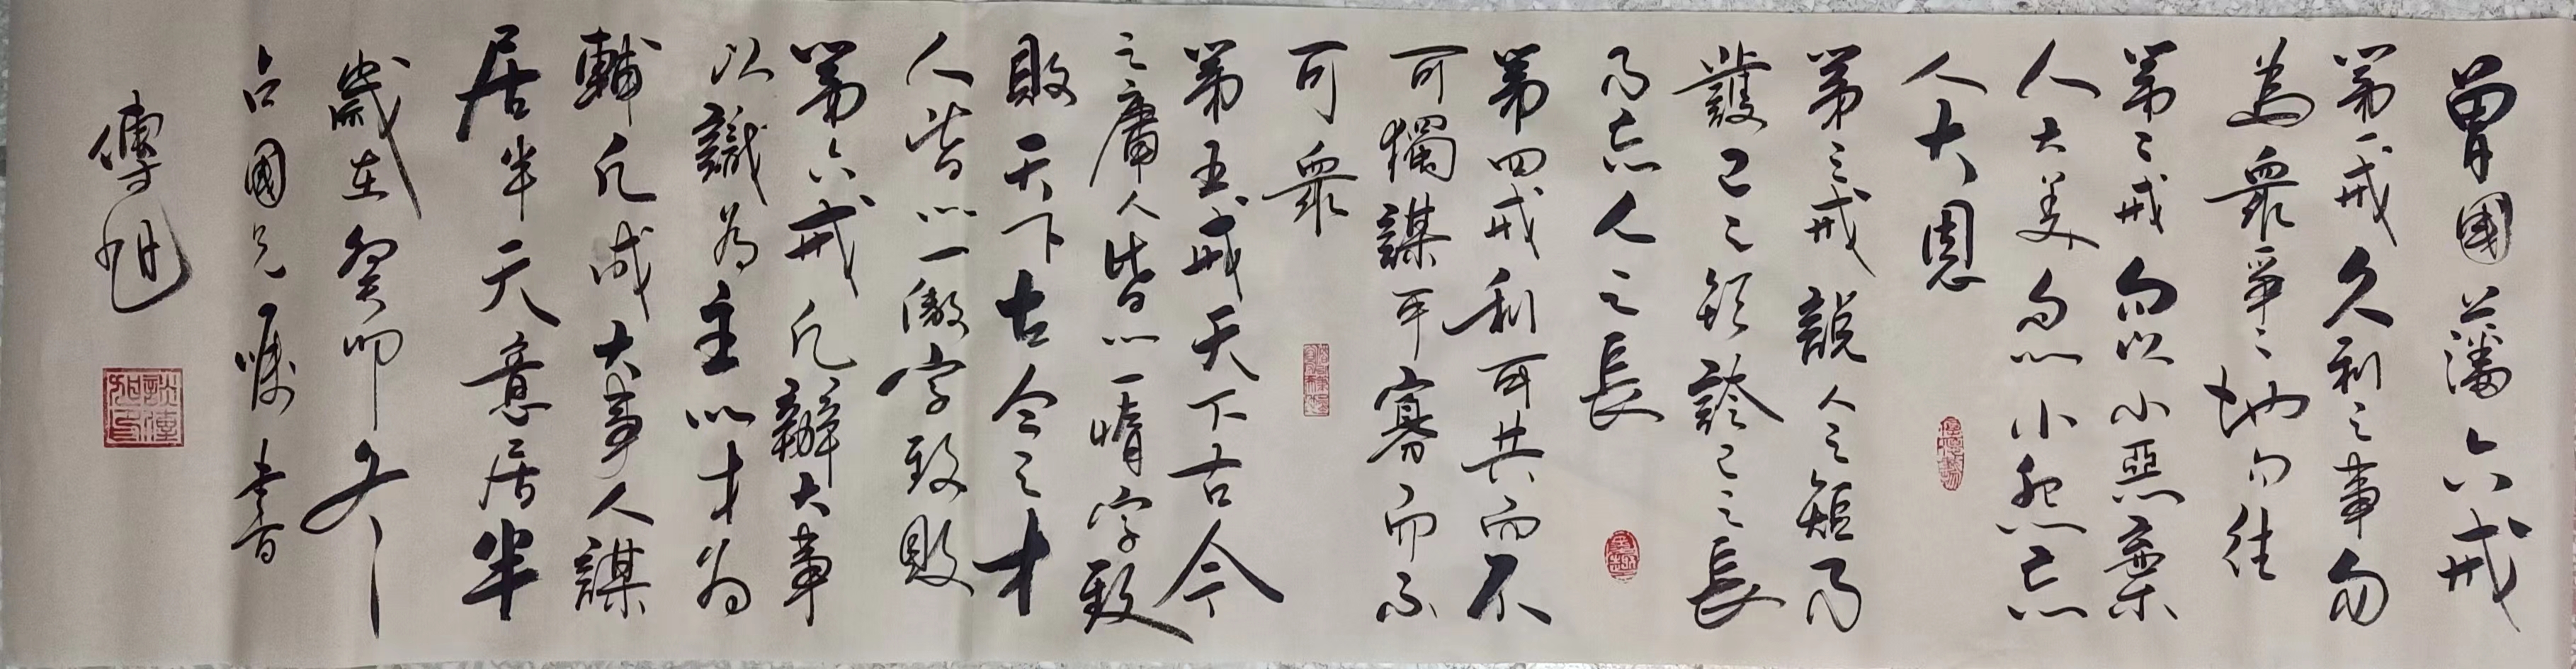 曾國藩六戒
第一戒久利之事勿
為眾爭之地勿往
第二戒勿以小惡棄
人大美勿以小怨忘
人大恩
第三戒說人之短乃
護己之短誇己之長
乃忘人之長
第四戒利可共而不
可獨謀可寡而不
可眾
第五戒天下古今
之庸人皆以一惰字致
敗天下古今之才
人皆以一傲字致敗
第六戒凡辦大事
以識為主以才為
輔凡成大事人謀
居半天意居半
歲在癸卯冬
占國兄囑書
傳旭